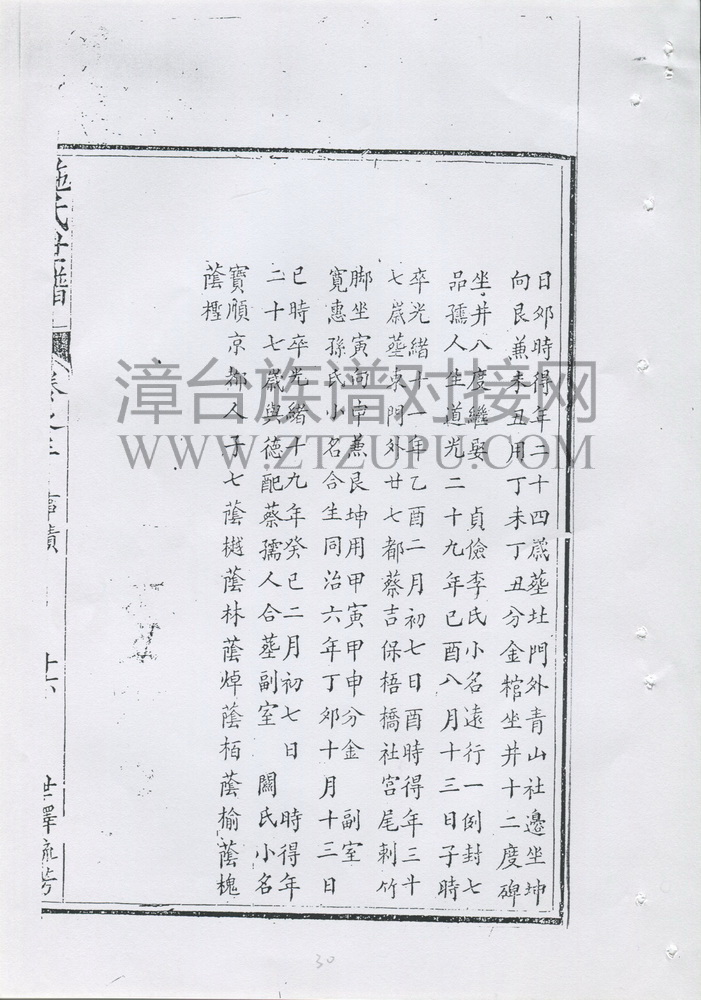 日卯時得年二十四歲塟北門外青山社邊坐坤
向艮兼未丑用丁未丁丑分金棺坐井十二度碑
坐井八度繼娶 貞儉李氏小名遠行一例封七
品孺人生道光二十九年己酉八月十三日子時
卒光緒十一年乙酉二月初七日酉時得年三十
七歲塟東門外廿七都蔡吉保梧橋社宫尾刺竹
脚坐寅向申兼艮坤用甲寅甲申分金 副室
寬惠孫氏小名合生同治六年丁卯十月十三日
巳時卒光緒十九年癸巳二月初七日 時得年
二十七歲與德配蔡孺人合塟副室 關氏小名
寶順京都人子七蔭樾蔭林蔭焯蔭栢蔭榆蔭槐
蔭檉
施氏世譜
卷之三 事蹟 十六
世澤流芳
漳台族谱对接网
WWW.ZTZUPU.COM
30